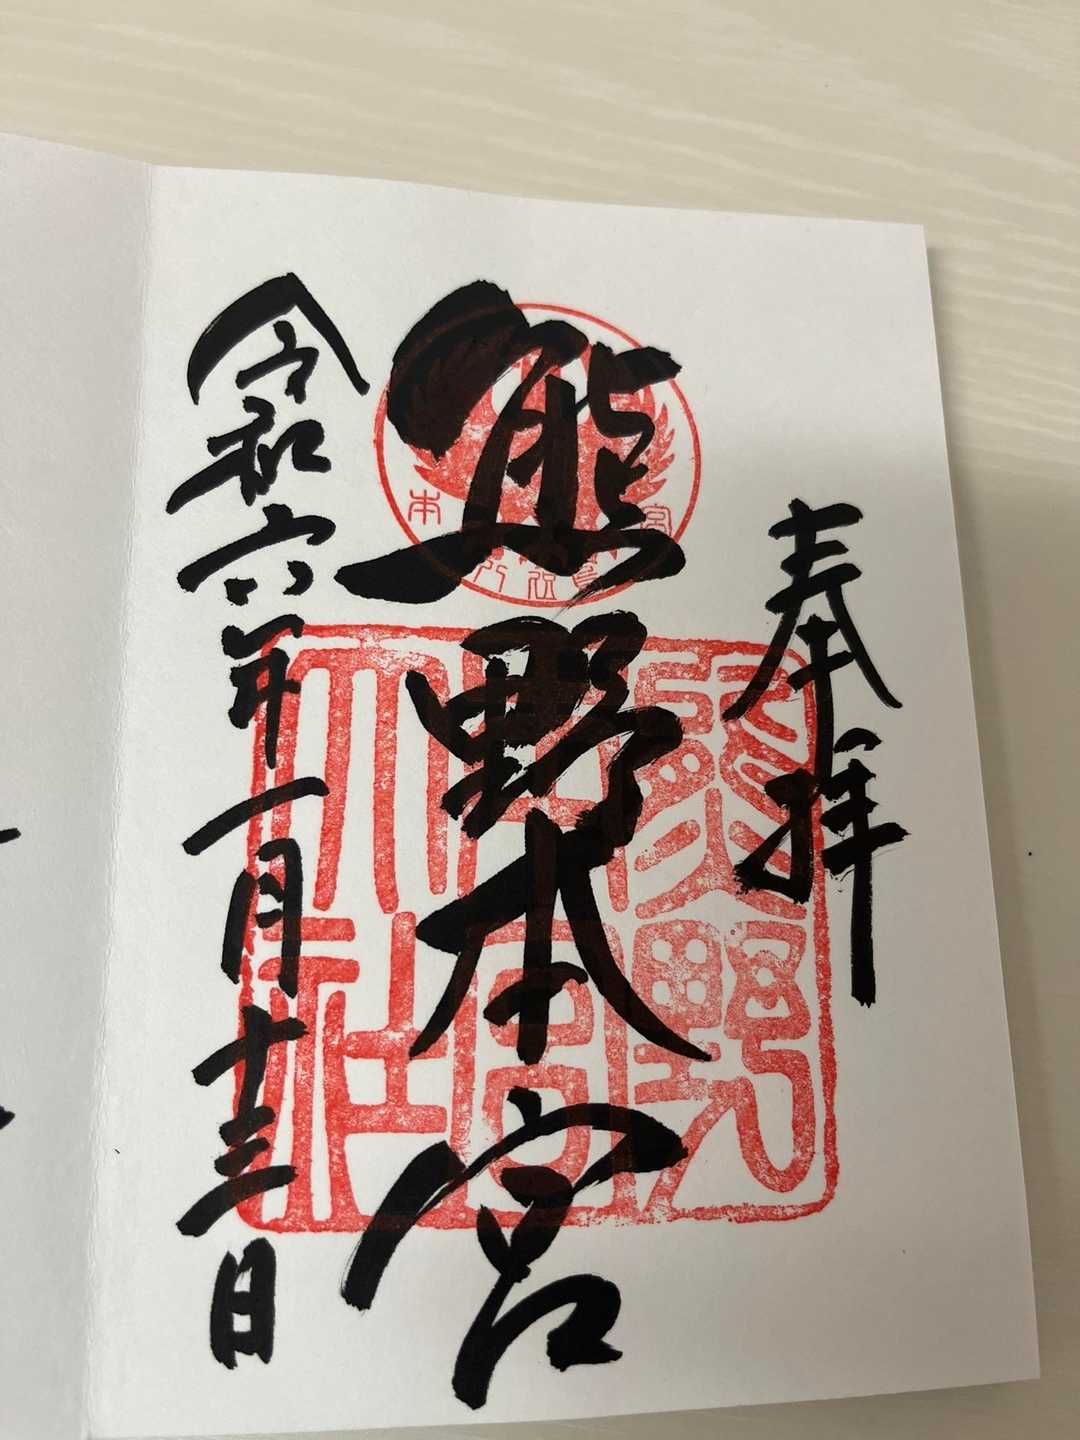 奉拝
熊野本宮
令和六年一月十三日
本宮
熊野本宮大社